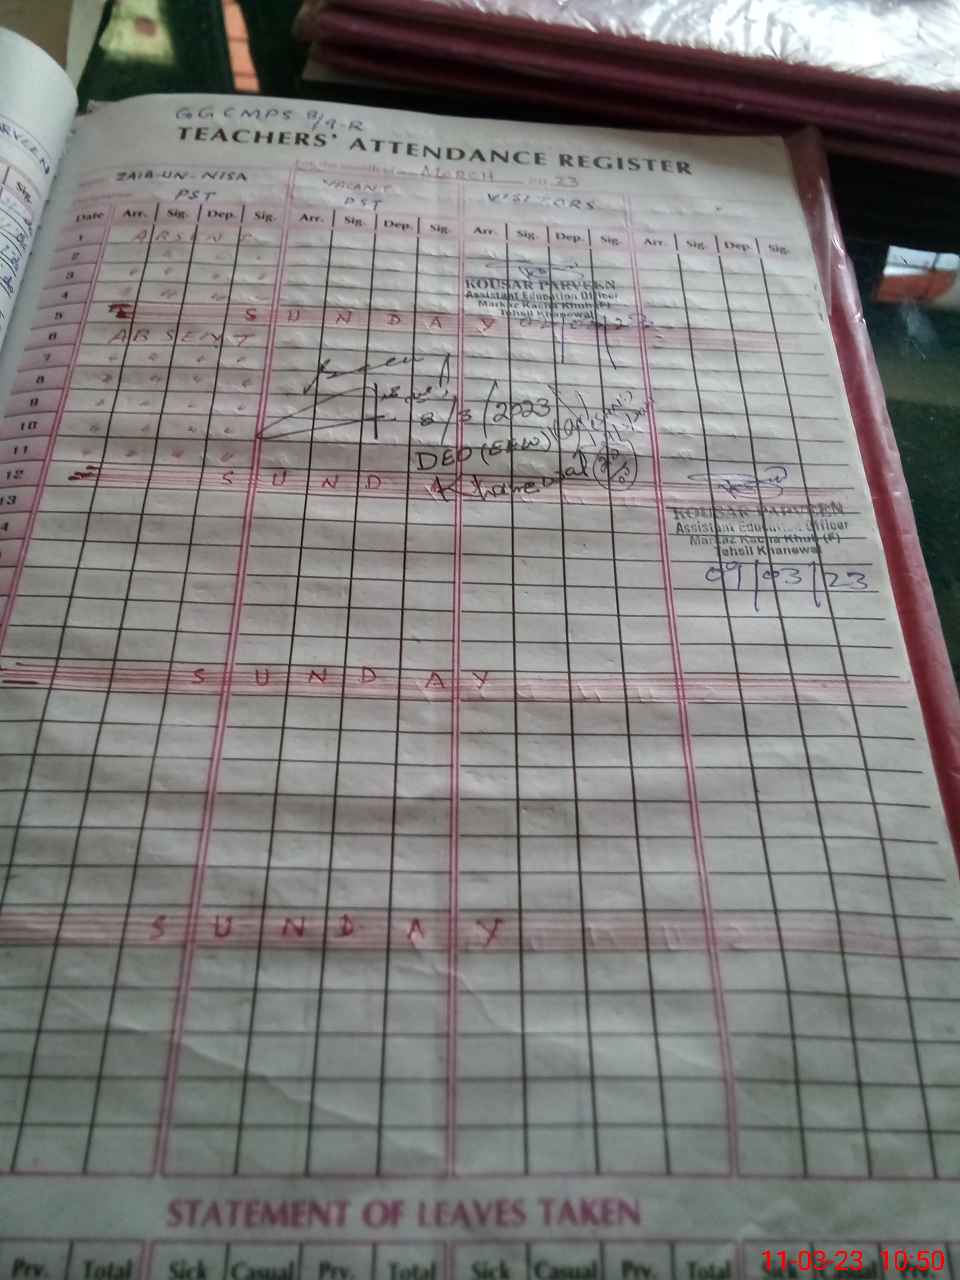 GGCMPS 8/9-R
TEACHERS' ATTENDANCE REGISTER
MARCH 23
ZAIB-UN-NISA VACANT VISITORS
PST PST
Date Arr. Sig. Dep. Sig. Arr. Sig. Dep. Sig. Arr. Sig. Dep. Sig. Arr. Sig. Dep. Sig.
1 ABSENT
2 " " " "
3 " " " "
4 " " " "
KOUSAR PARVEEN
Assistant Education Officer
Markaz Kacha Khuh (F)
Tehsil Khanewal
5 SUNDAY
6 ABSENT
7 " " " "
8 " " " "
9 " " " "
8/3/2023
10 " " " "
11 " " " "
DEO (EEW)
Khanewal
12 SUNDAY
13
KOUSAR PARVEEN
Assistant Education Officer
Markaz Kacha Khuh (F)
Tehsil Khanewal
09/03/23
SUNDAY
SUNDAY
STATEMENT OF LEAVES TAKEN
Prv. Total Sick Casual Prv. Total Sick Casual Prv. Total Sick Casual
11-03-23 10:50